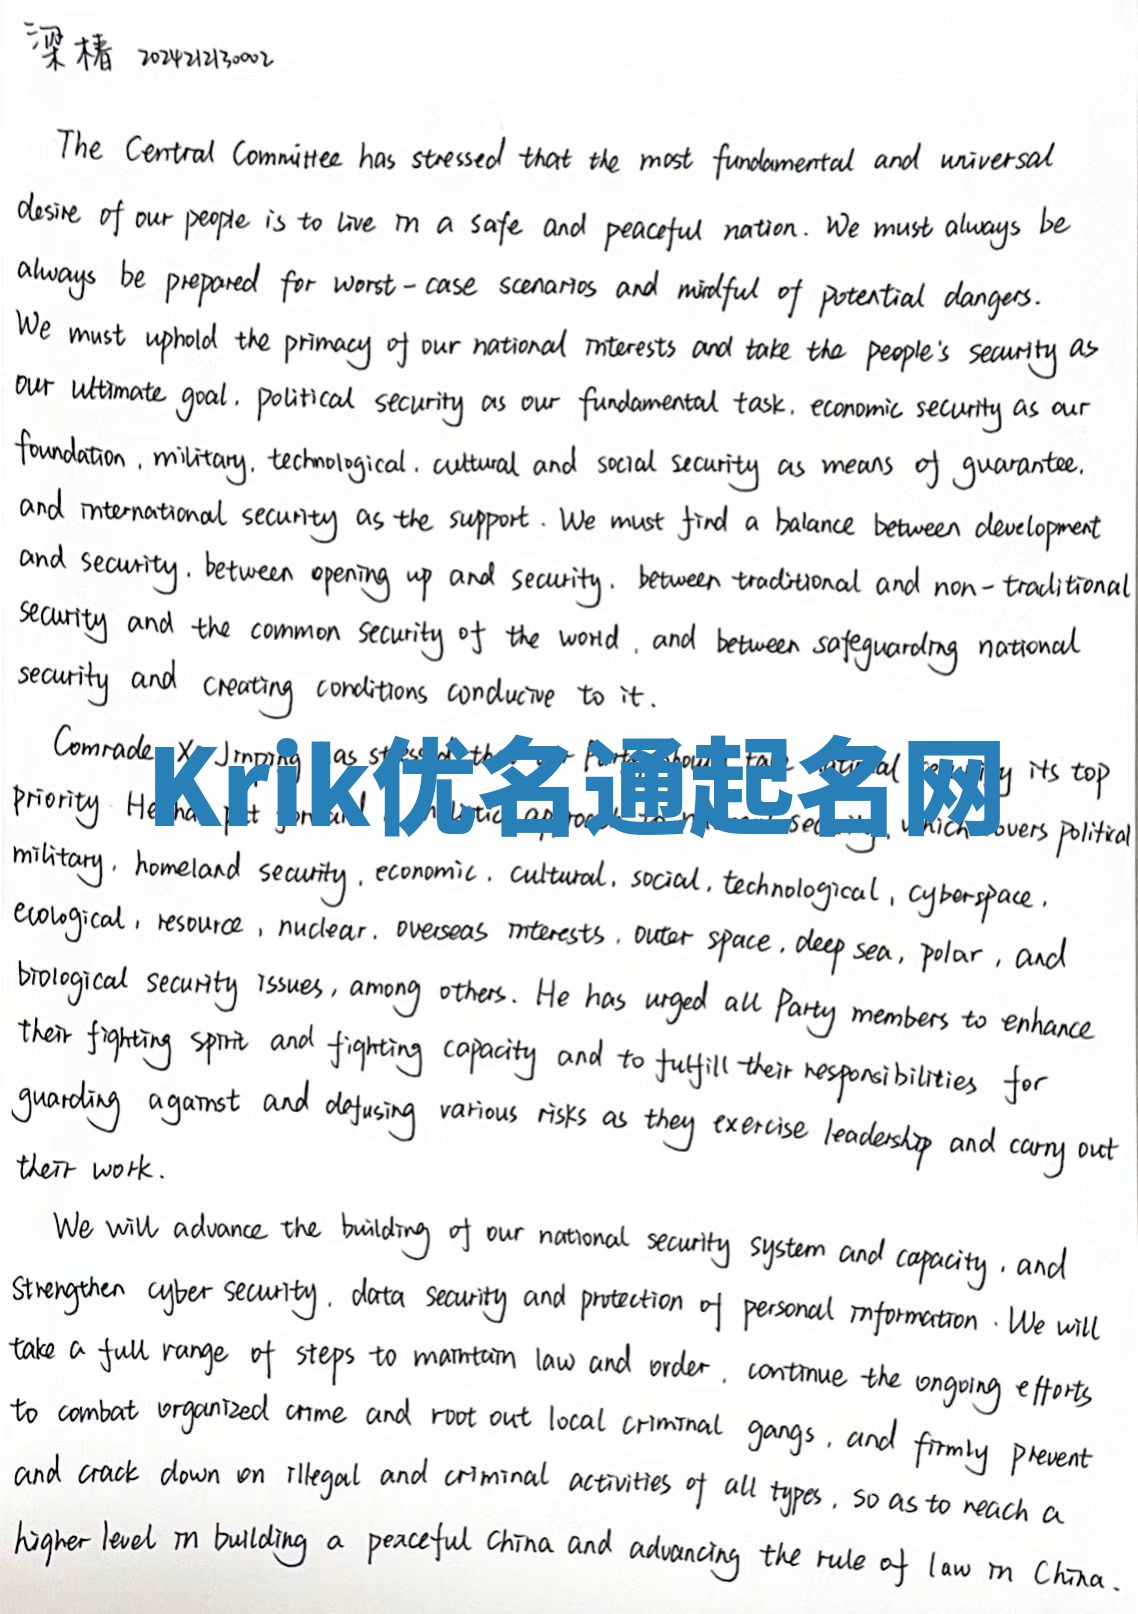 梁椿 2024212130002
The Central Committee has stressed that the most fundamental and universal
desire of our people is to live in a safe and peaceful nation. We must always be
always be prepared for worst-case scenarios and mindful of potential dangers.
We must uphold the primacy of our national interests and take the people's security as
our ultimate goal, political security as our fundamental task, economic security as our
foundation, military, technological, cultural and social security as means of guarantee,
and international security as the support. We must find a balance between development
and security, between opening up and security, between traditional and non-traditional
security and the common security of the world, and between safeguarding national
security and creating conditions conducive to it.
Comrade Xi Jinping has stressed that our Party should take national security its top
Krik优名通起名网
priority. He has put forward a holistic approach to national security, which covers political
military, homeland security, economic, cultural, social, technological, cyberspace,
ecological, resource, nuclear, overseas interests, outer space, deep sea, polar, and
biological security issues, among others. He has urged all Party members to enhance
their fighting spirit and fighting capacity and to fulfill their responsibilities for
guarding against and defusing various risks as they exercise leadership and carry out
their work.
We will advance the building of our national security system and capacity, and
strengthen cyber security, data security and protection of personal information. We will
take a full range of steps to maintain law and order, continue the ongoing efforts
to combat organized crime and root out local criminal gangs, and firmly prevent
and crack down on illegal and criminal activities of all types, so as to reach a
higher level in building a peaceful China and advancing the rule of law in China.